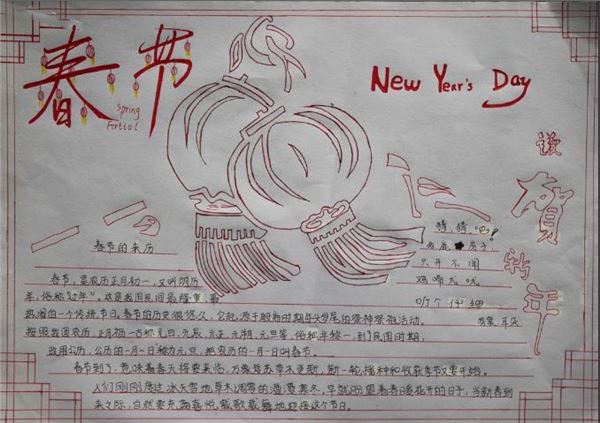 春节
Spring
Fertial
New Year's Day
谈
贺
新
年
春节的来历
猜猜吧!
只开不闭
鸡啼九吼
听个仔细
春节,是农历正月初一,又叫阴历
年,俗称"过年"。这是我国民间最隆重、最
热闹的一个传统节日。春节的历史很悠久,它起源于殷商时期年头岁尾的祭神祭祖活动。
按照我国农历,正月初一古称元日、元辰、元正、元朔、元旦等,俗称年初一,到了民国时期,
改用公历,公历的一月一日称为元旦,把农历的一月一日叫春节。
春节到了,意味着春天将要来临,万象复苏草木更新,新一轮播种和收获季节又要开始。
人们刚刚度过冰天雪地草木凋零的漫漫寒冬,早就盼望着春暖花开的日子,当新春到
来之际,自然要充满喜悦载歌载舞地迎接这个节日。